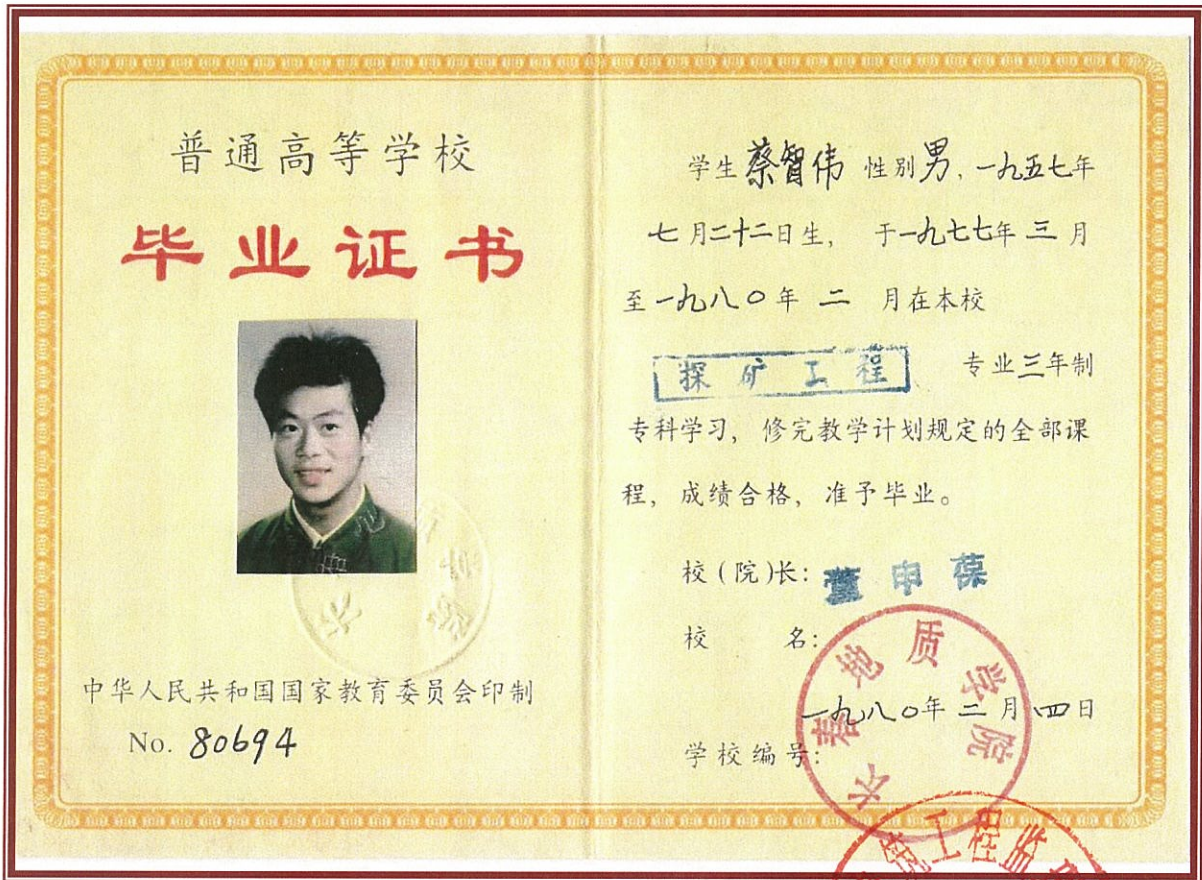 普通高等学校
毕业证书
中华人民共和国国家教育委员会印制
No. 80694
学生蔡智伟 性别男,一九五七年
七月二十二日生, 于一九七七年三月
至一九八〇年 二 月在本校
探矿工程 专业三年制
专科学习, 修完教学计划规定的全部课
程, 成绩合格, 准予毕业。
校(院)长: 董申葆
校 名:
长春地质学院
一九八〇年二月四日
学校编号:
工程监